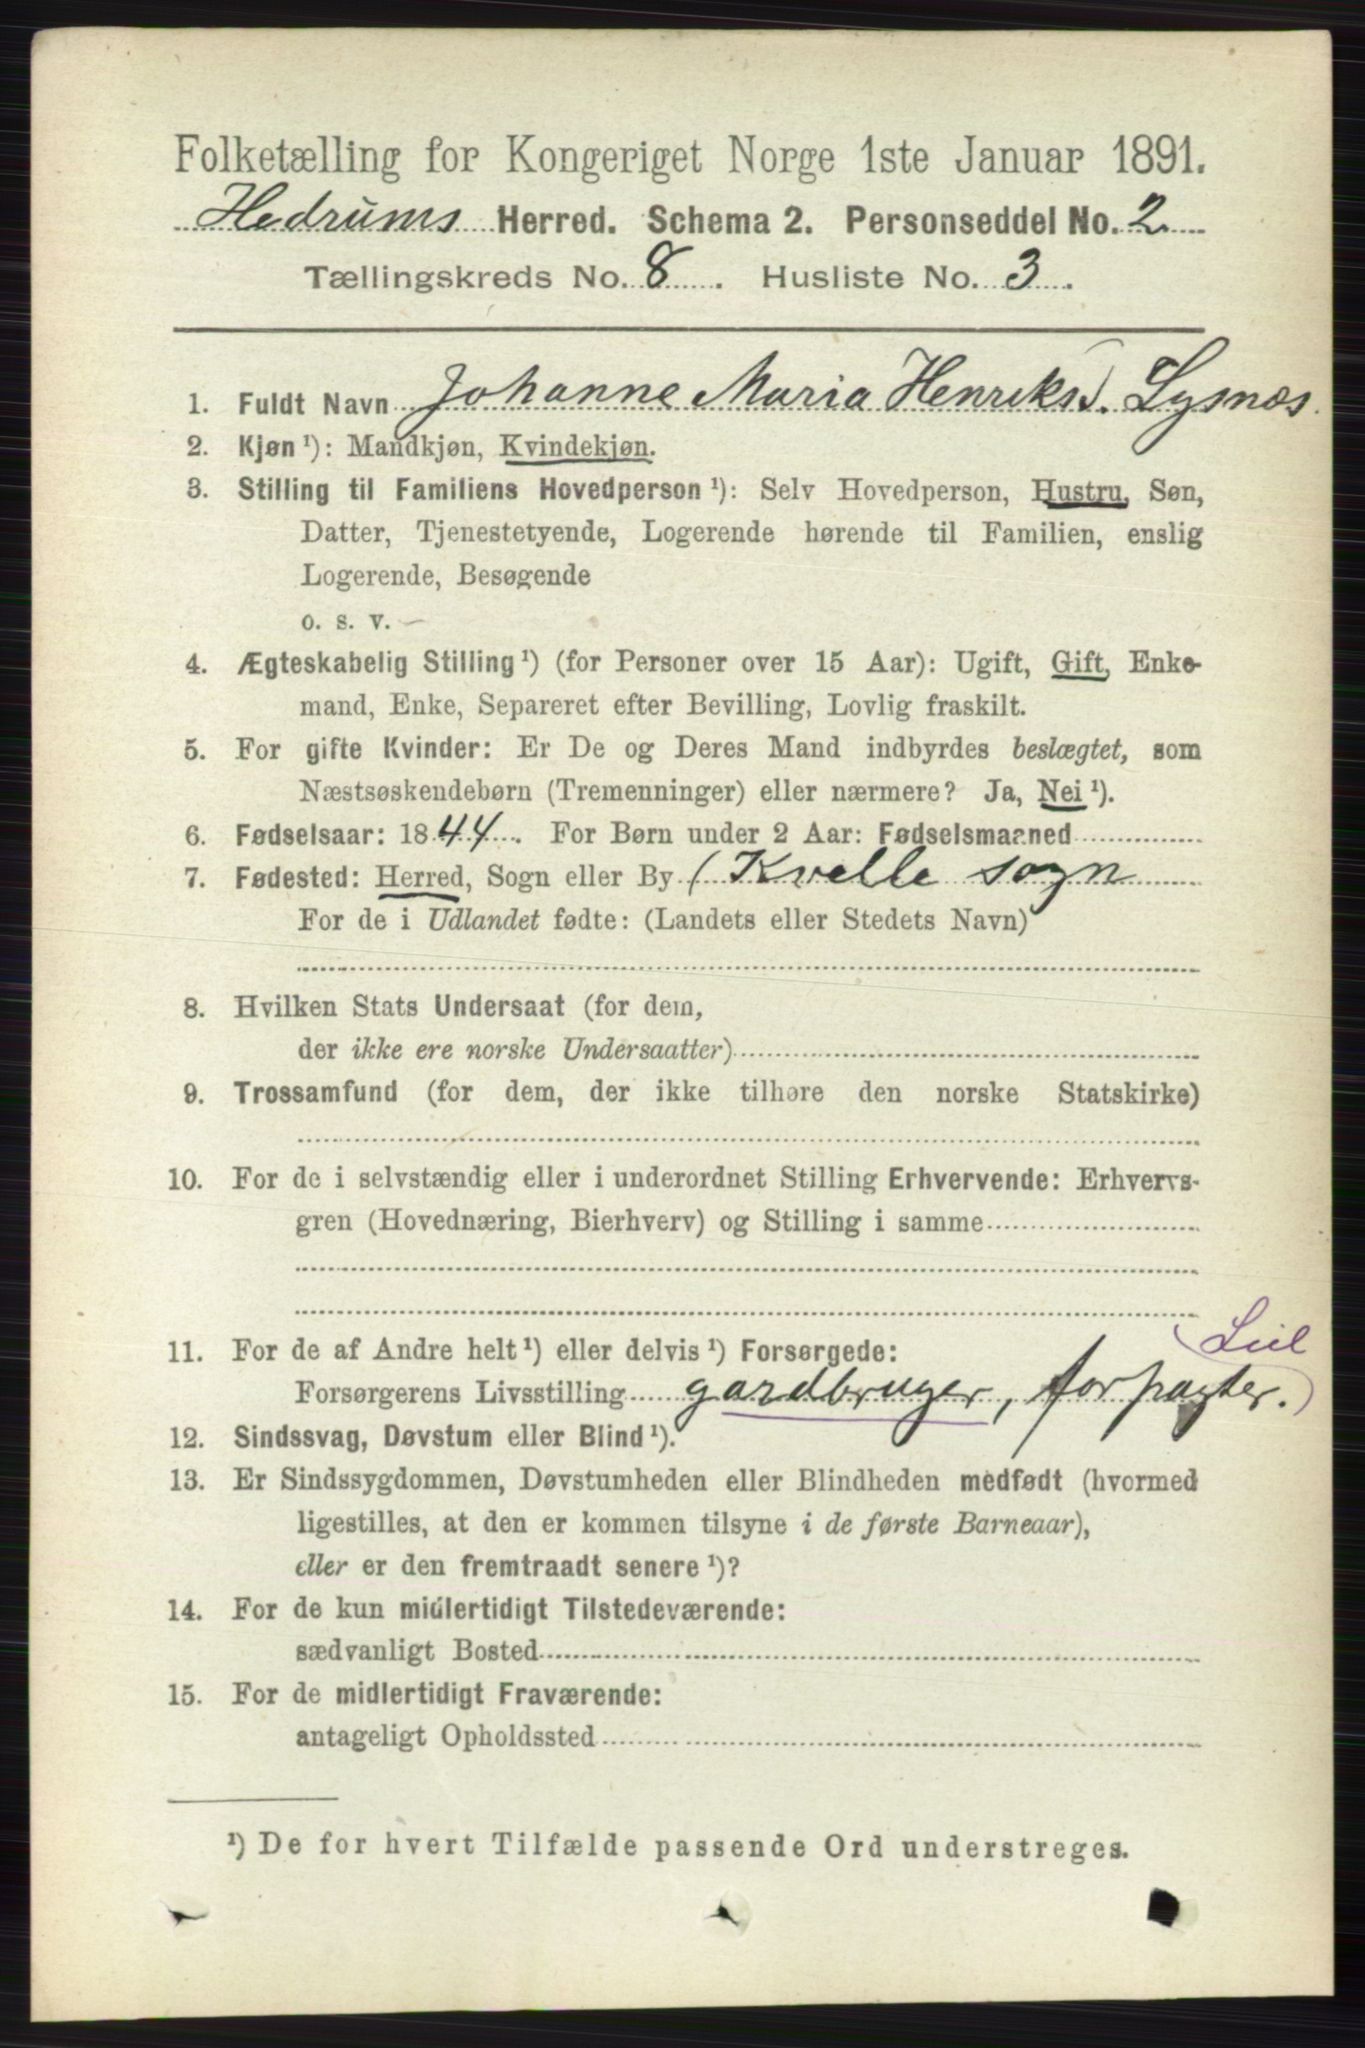 Folketælling for Kongeriget Norge 1ste Januar 1891.
Hedrums Herred. Schema 2. Personseddel No. 2
Tællingskreds No. 8. Husliste No. 3.
1. Fuldt Navn Johanne Maria Henriksd. Lysnæs
2. Kjøn ¹): Mandkjøn, Kvindekjøn.
3. Stilling til Familiens Hovedperson ¹): Selv Hovedperson, Hustru, Søn,
Datter, Tjenestetyende, Logerende hørende til Familien, enslig
Logerende, Besøgende
o. s. v.
4. Ægteskabelig Stilling ¹) (for Personer over 15 Aar): Ugift, Gift, Enke-
mand, Enke, Separeret efter Bevilling, Lovlig fraskilt.
5. For gifte Kvinder: Er De og Deres Mand indbyrdes beslægtet, som
Næstsøskendebørn (Tremenninger) eller nærmere? Ja, Nei ¹).
6. Fødselsaar: 1844. For Børn under 2 Aar: Fødselsmaaned
7. Fødested: Herred, Sogn eller By (Kvelle sogn
For de i Udlandet fødte: (Landets eller Stedets Navn)
8. Hvilken Stats Undersaat (for dem,
der ikke ere norske Undersaatter)
9. Trossamfund (for dem, der ikke tilhøre den norske Statskirke)
10. For de i selvstændig eller i underordnet Stilling Erhvervende: Erhvervs-
gren (Hovednæring, Bierhverv) og Stilling i samme
11. For de af Andre helt ¹) eller delvis ¹) Forsørgede:
Forsørgerens Livsstilling gardbruger, forpagter.)
12. Sindssvag, Døvstum eller Blind ¹).
13. Er Sindssygdommen, Døvstumheden eller Blindheden medfødt (hvormed
ligestilles, at den er kommen tilsyne i de første Barneaar),
eller er den fremtraadt senere ¹)?
14. For de kun midlertidigt Tilstedeværende:
sædvanligt Bosted
15. For de midlertidigt Fraværende:
antageligt Opholdssted
¹) De for hvert Tilfælde passende Ord understreges.